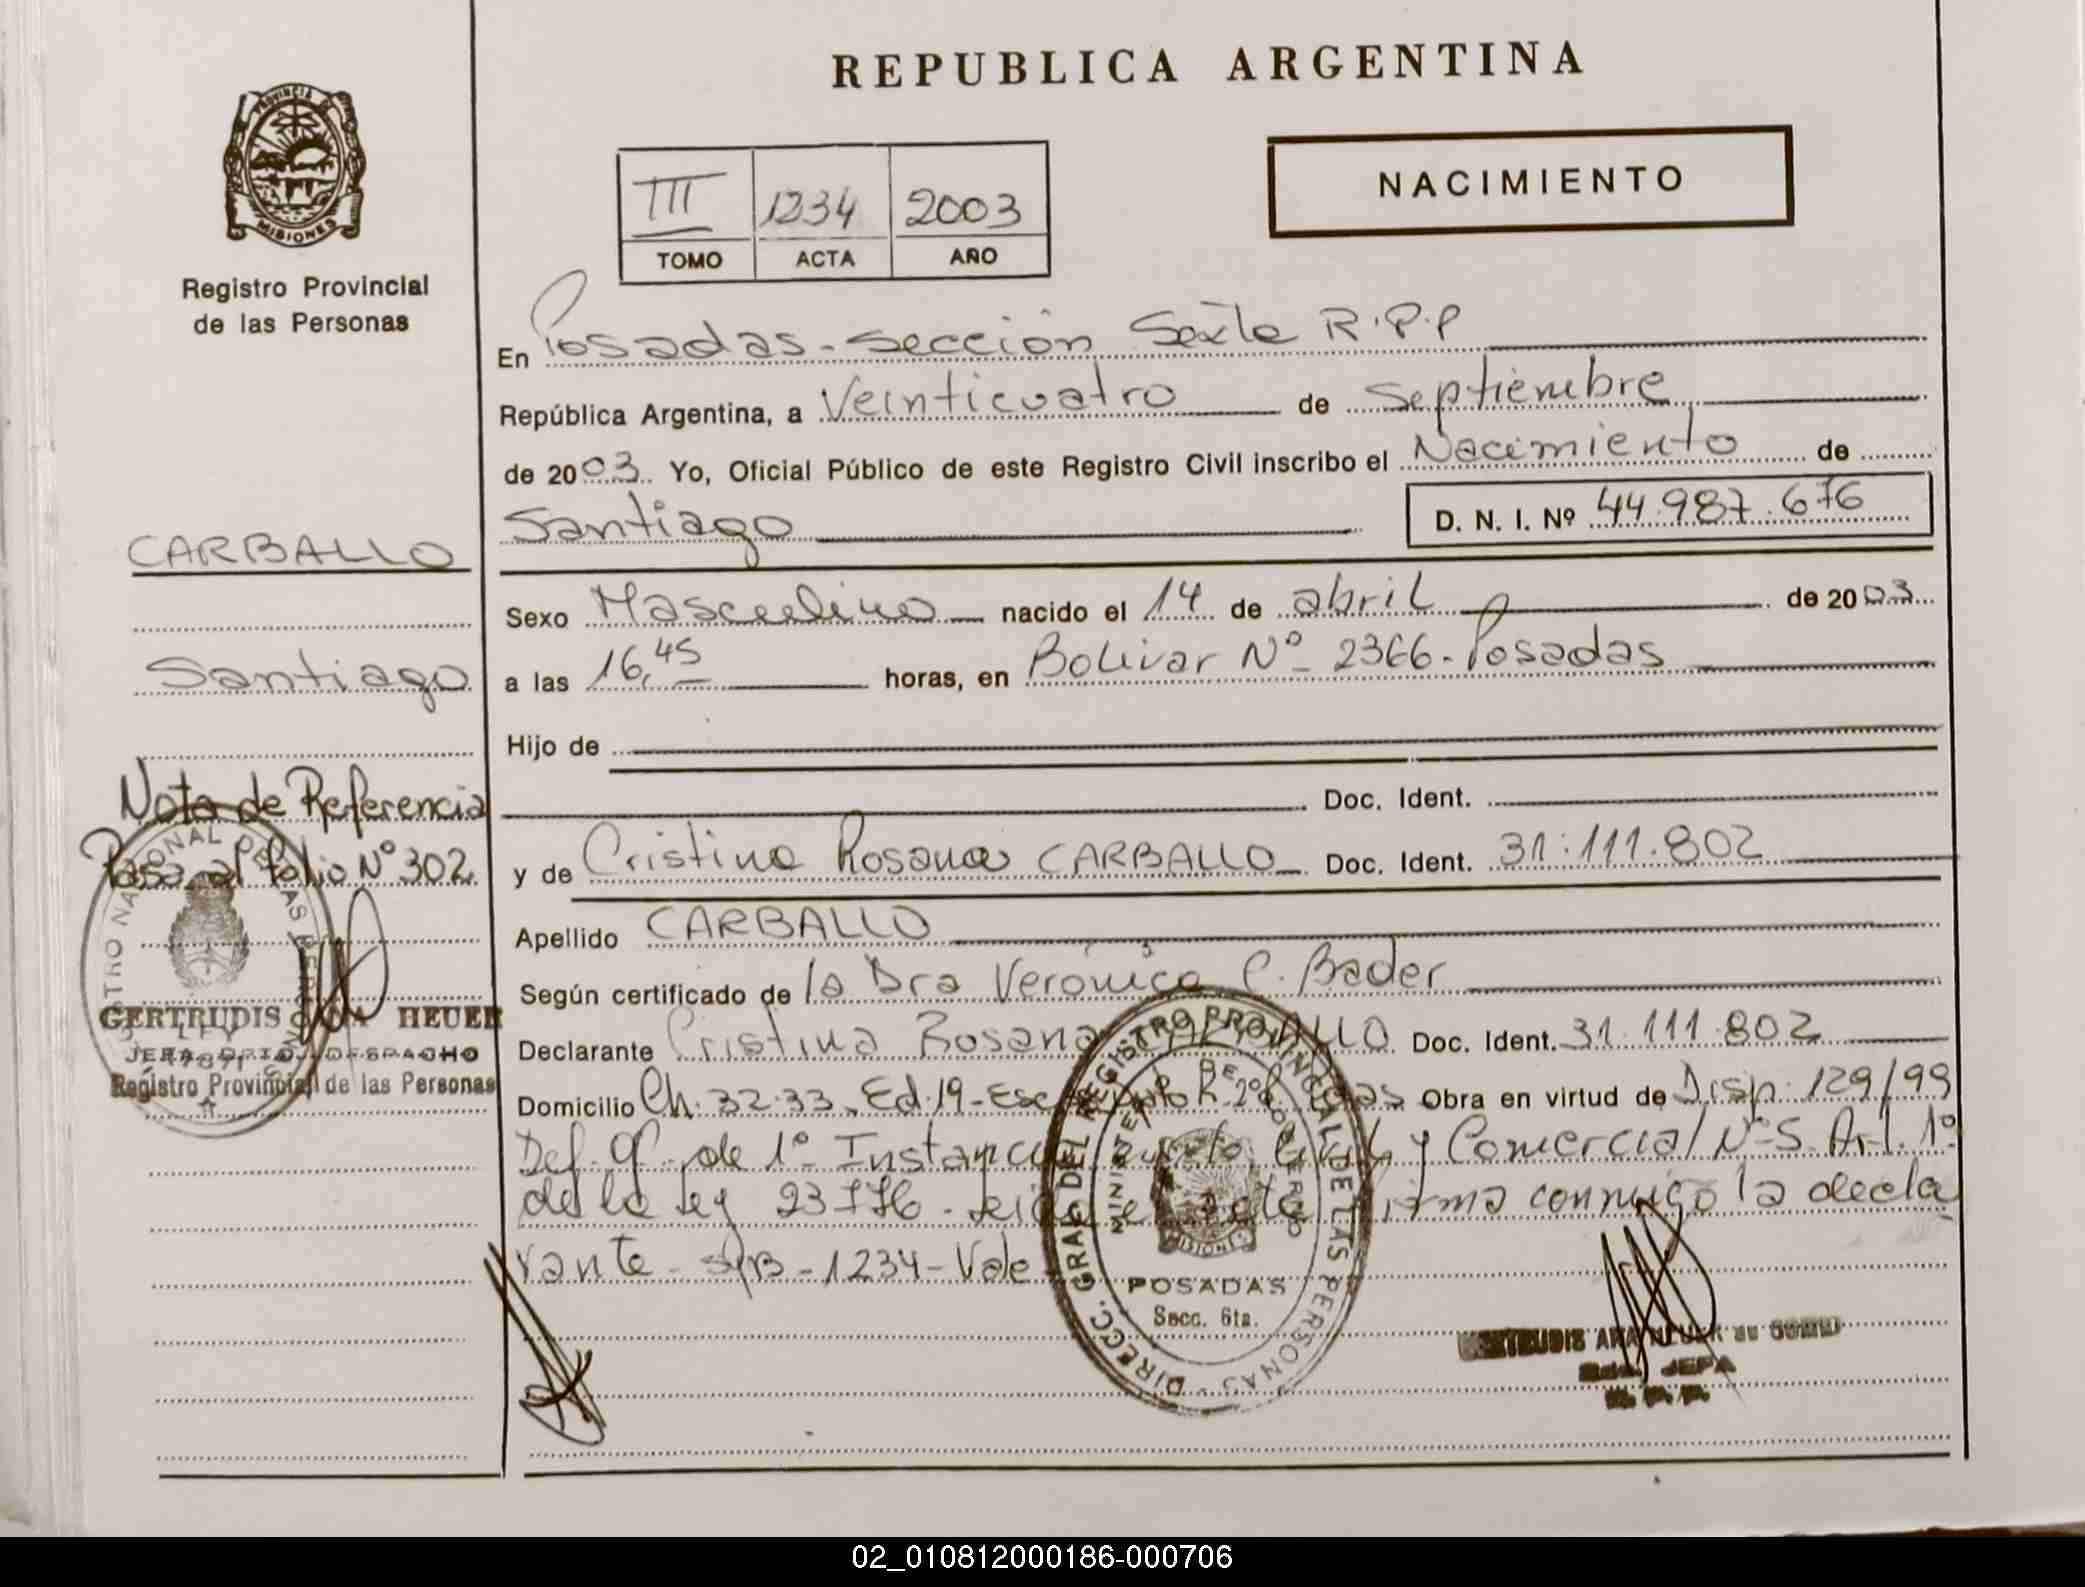 REPUBLICA ARGENTINA
PROVINCIA DE
MISIONES
Registro Provincial
de las Personas
NACIMIENTO
III 1234 2003
TOMO ACTA AÑO
En Posadas - Sección Sexta R.P.P
República Argentina, a Veinticuatro de Septiembre
de 2003. Yo, Oficial Público de este Registro Civil inscribo el Nacimiento de
Santiago D. N. I. Nº 44.987.676
Sexo Masculino nacido el 14 de abril de 2003
a las 16,45 horas, en Bolivar Nº 2366 - Posadas
Hijo de
Doc. Ident.
y de Cristina Rosana CARBALLO Doc. Ident. 31.111.802
Apellido CARBALLO
Según certificado de la Dra Verónica C. Bader
Declarante Cristina Rosana CARBALLO Doc. Ident. 31.111.802
Domicilio Ch. 32-33 Ed. 19 - Obra en virtud de Disp. 129/99
Def. Of. de 1º Instancia Civil y Comercial Nº 5. Art. 1º
de la Ley 23.776 - firma conmigo la decla
rante - S/B - 1234 - Vale
CARBALLO
Santiago
Nota de Referencia
Pasa al folio Nº 302
GERTRUDIS HEUER
JEFA DPTO. DESPACHO
Registro Provincial de las Personas
DIRECC. GRAL. DEL REGISTRO PROVINCIAL DE LAS PERSONAS
MISIONES
POSADAS
Secc. 6ta.
JEFA
R. P. P.
02_010812000186-000706